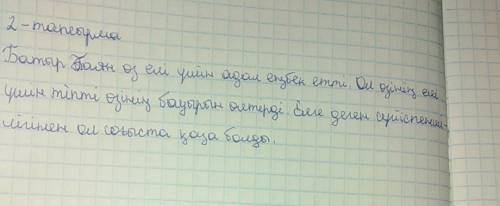 2-тапсырма
Батыр Баян өз елі үшін адал еңбек етті. Ол өзінің елі
үшін тіпті өзінің бауырын өлтірді. Елге деген сүйіспенші-
лігінен ол соғыста қаза болды.